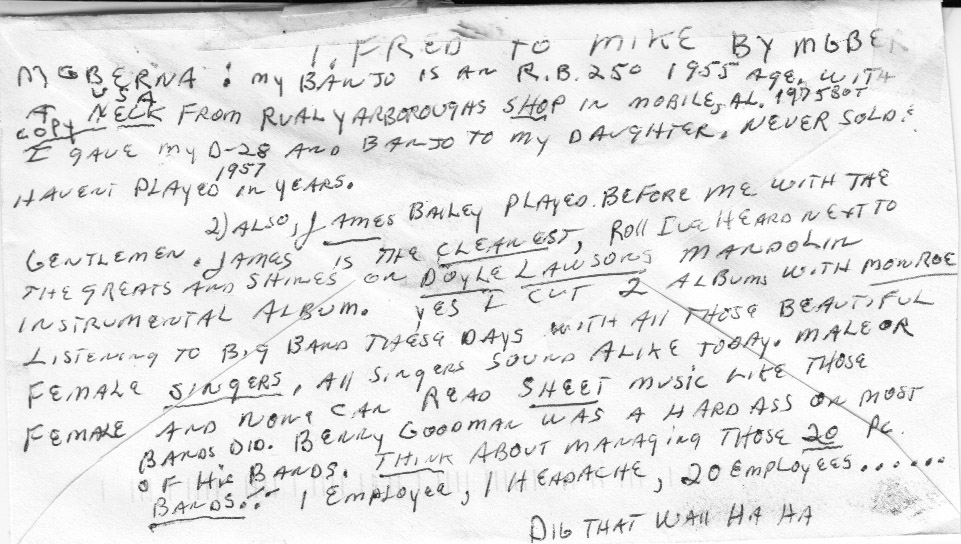 1. FRED TO MIKE BY MGBER
MGBERNA: MY BANJO IS AN R.B. 250 1955 AGE, WITH
A USA
COPY NECK FROM RUAL YARBOROUGHS SHOP IN MOBILE, AL. 1975 BOT
I GAVE MY D-28 AND BANJO TO MY DAUGHTER. NEVER SOLD.
1957
HAVENT PLAYED IN YEARS.
2) ALSO, JAMES BAILEY PLAYED. BEFORE ME WITH THE
GENTLEMEN. JAMES IS THE CLEANEST, ROLL IVE HEARD NEXT TO
THE GREATS AND SHINES ON DOYLE LAWSONS MANDOLIN
INSTRUMENTAL ALBUM. YES I CUT 2 ALBUMS WITH MONROE
LISTENING TO BIG BAND THESE DAYS WITH ALL THOSE BEAUTIFUL
FEMALE SINGERS, ALL SINGERS SOUND ALIKE TODAY. MALE OR
FEMALE AND NONE CAN READ SHEET MUSIC LIKE THOSE
BANDS DID. BENNY GOODMAN WAS A HARD ASS ON MOST
OF HIS BANDS. THINK ABOUT MANAGING THOSE 20 PC.
BANDS.:. 1 EMPLOYEE, 1 HEADACHE, 20 EMPLOYEES......
DIG THAT WALL HA HA